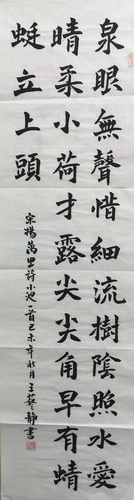 泉眼無聲惜細流樹陰照水愛
晴柔小荷才露尖尖角早有蜻
蜓立上頭
宋楊萬里詩小池一首己未年秋月王藝靜書